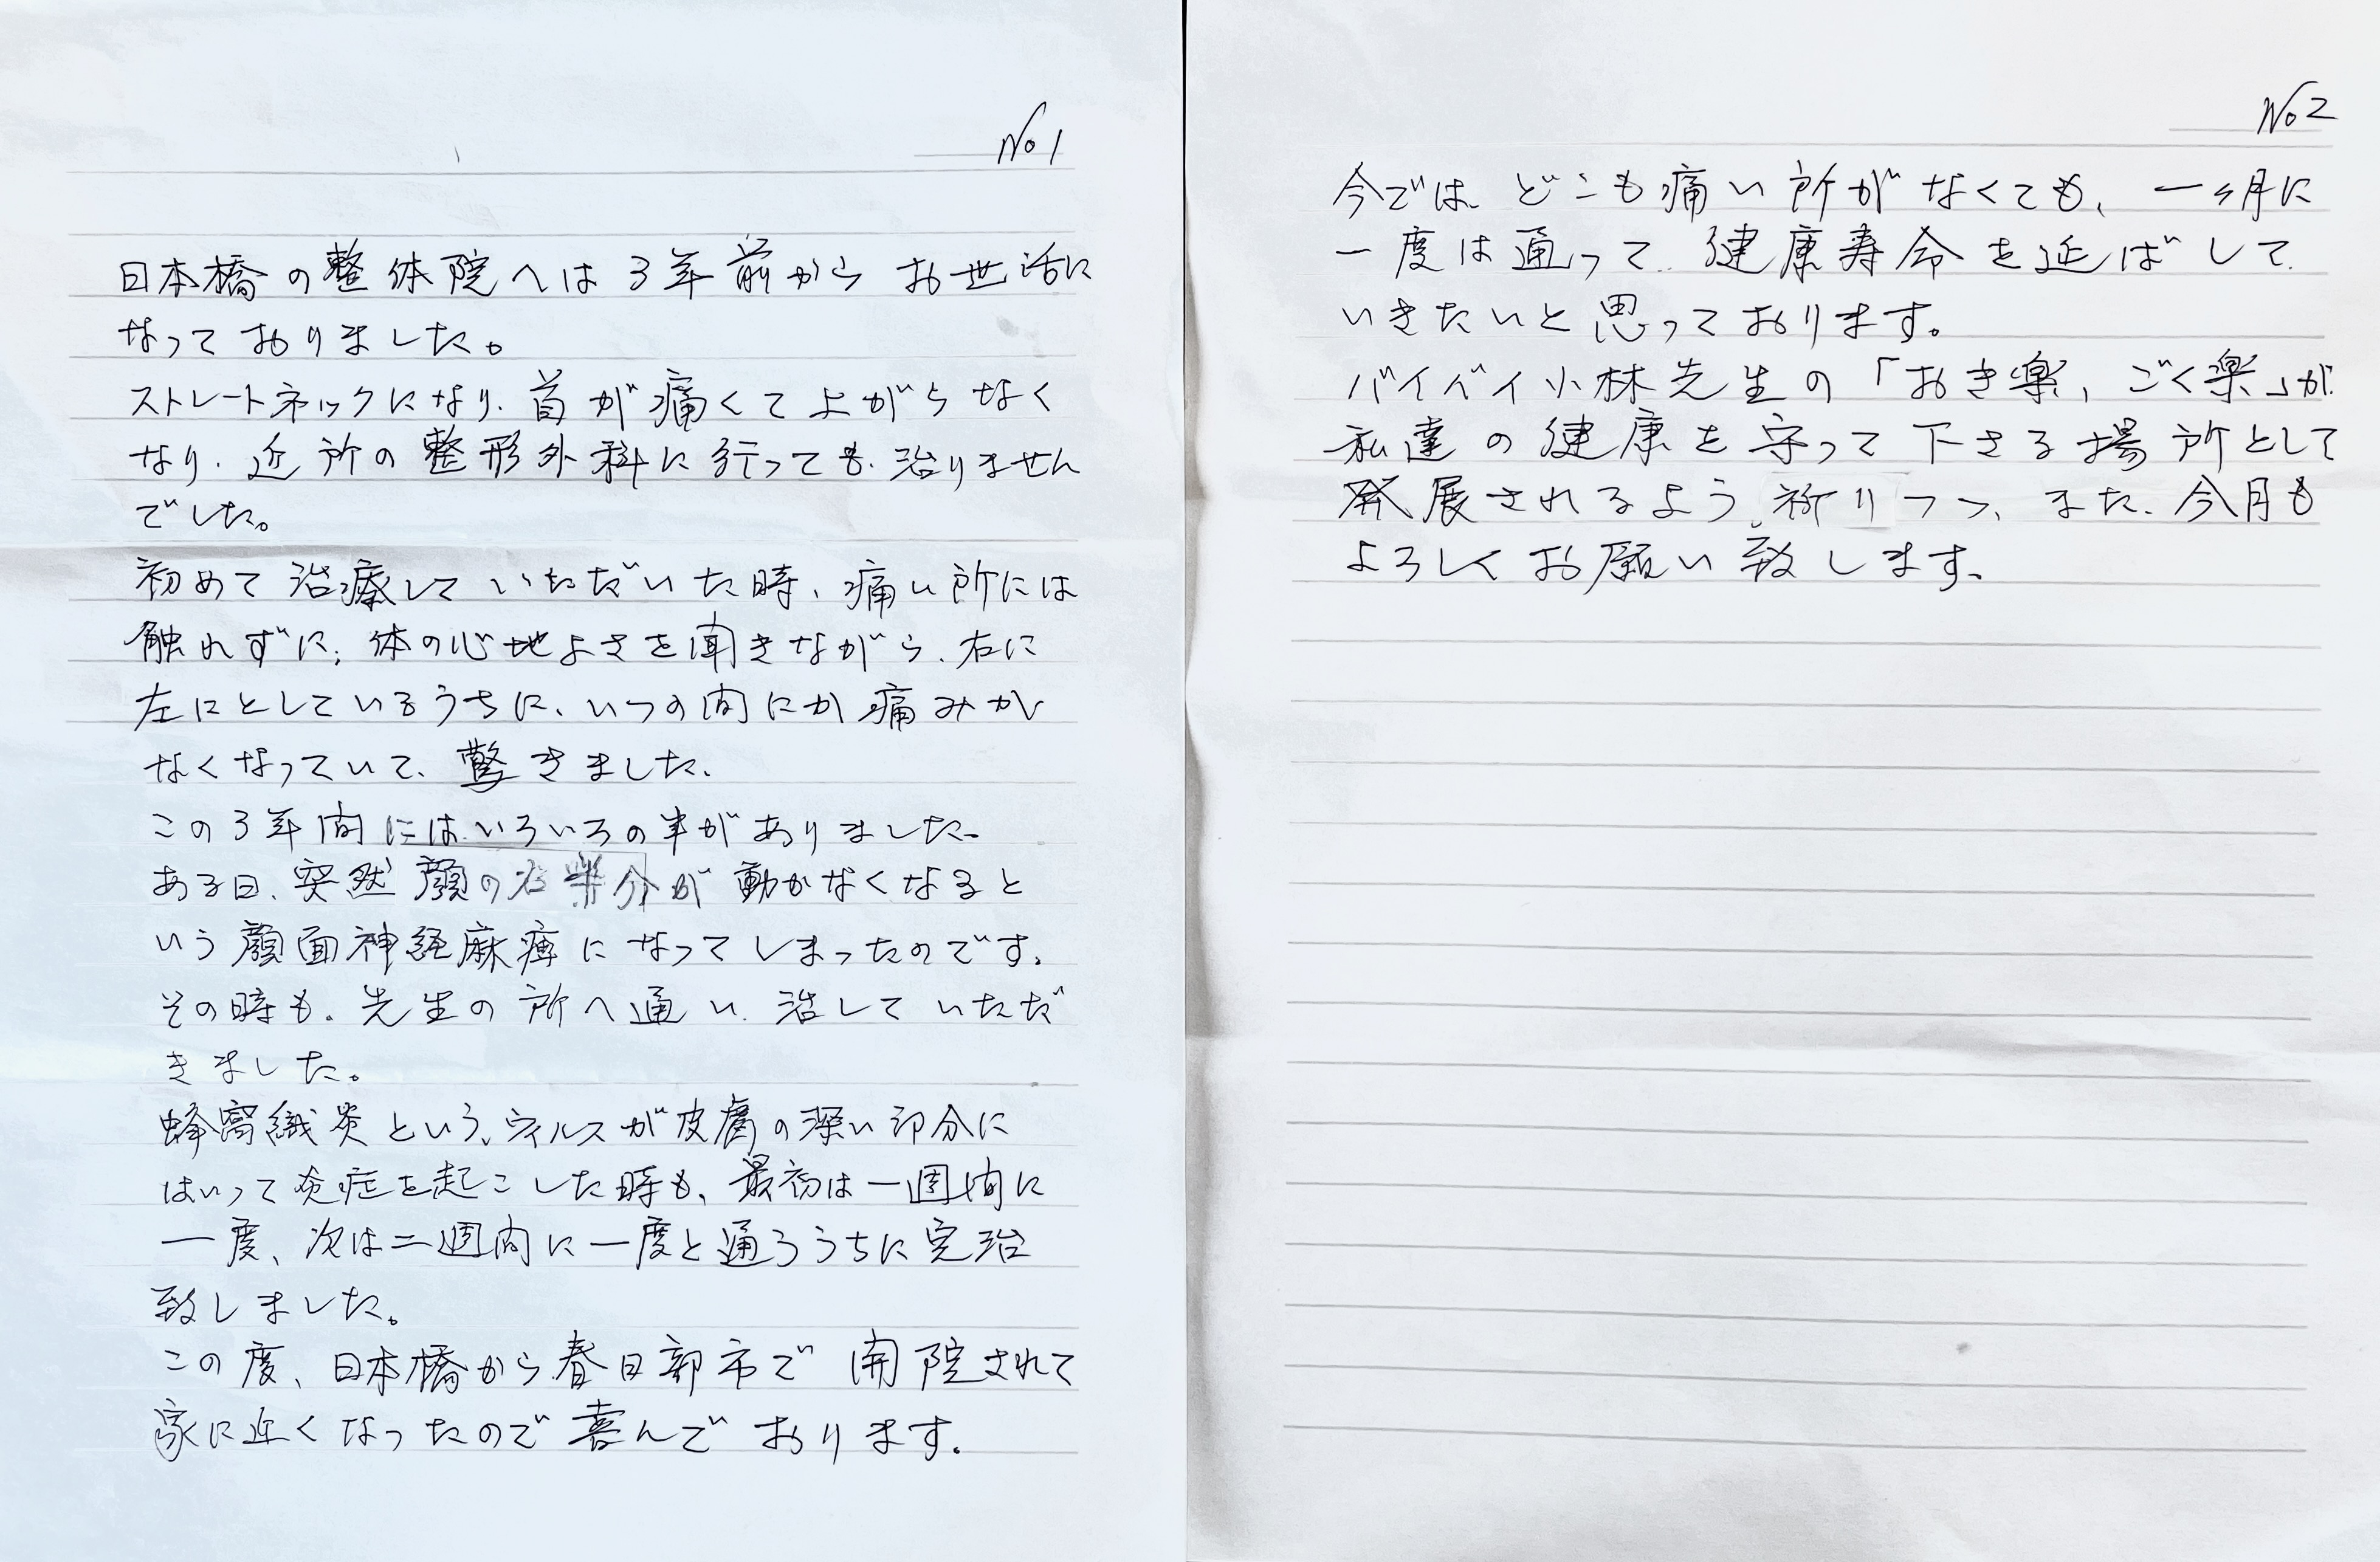 No 1
日本橋の整体院へは3年前からお世話に
なっておりました。
ストレートネックになり、首が痛くて上がらなく
なり、近所の整形外科に行っても、治りません
でした。
初めて治療していただいた時、痛い所には
触れずに、体の心地よさを聞きながら、右に
左にとしているうちに、いつの間にか痛みが
なくなっていて、驚きました。
この3年間には、いろいろの事がありました。
ある日、突然顔の右半分が動かなくなると
いう顔面神経麻痺になってしまったのです。
その時も、先生の所へ通い、治していただ
きました。
蜂窩織炎という、ウィルスが皮膚の深い部分に
はいって炎症を起こした時も、最初は一週間に
一度、次は二週間に一度と通ろうちに完治
致しました。
この度、日本橋から春日部市で開院されて
家に近くなったので喜んでおります。
No 2
今では、どこも痛い所がなくても、一ヶ月に
一度は通って、健康寿命を延ばして
いきたいと思っております。
バイバイ小林先生の「おき楽、ごく楽」が
私達の健康を守って下さる場所として
発展されるよう、祈りつつ、また、今月も
よろしくお願い致します。